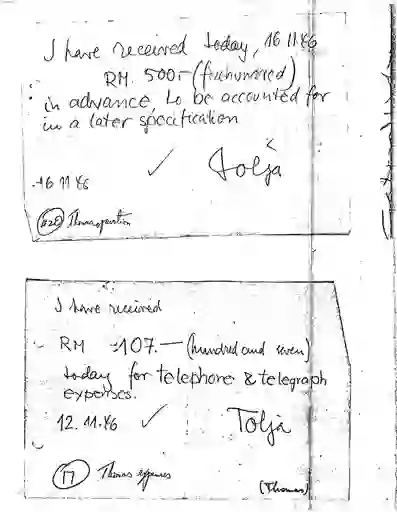 I have received today, 16 11 46
RM. 500.- (fivehundred)
in advance, to be accounted for
in a later specification
16 11 46
Tolja
I have received
RM 107.— (hundred and seven)
today for telephone & telegraph
expenses.
12.11.46
Tolja
17 Thomas expenses
(Thomas)